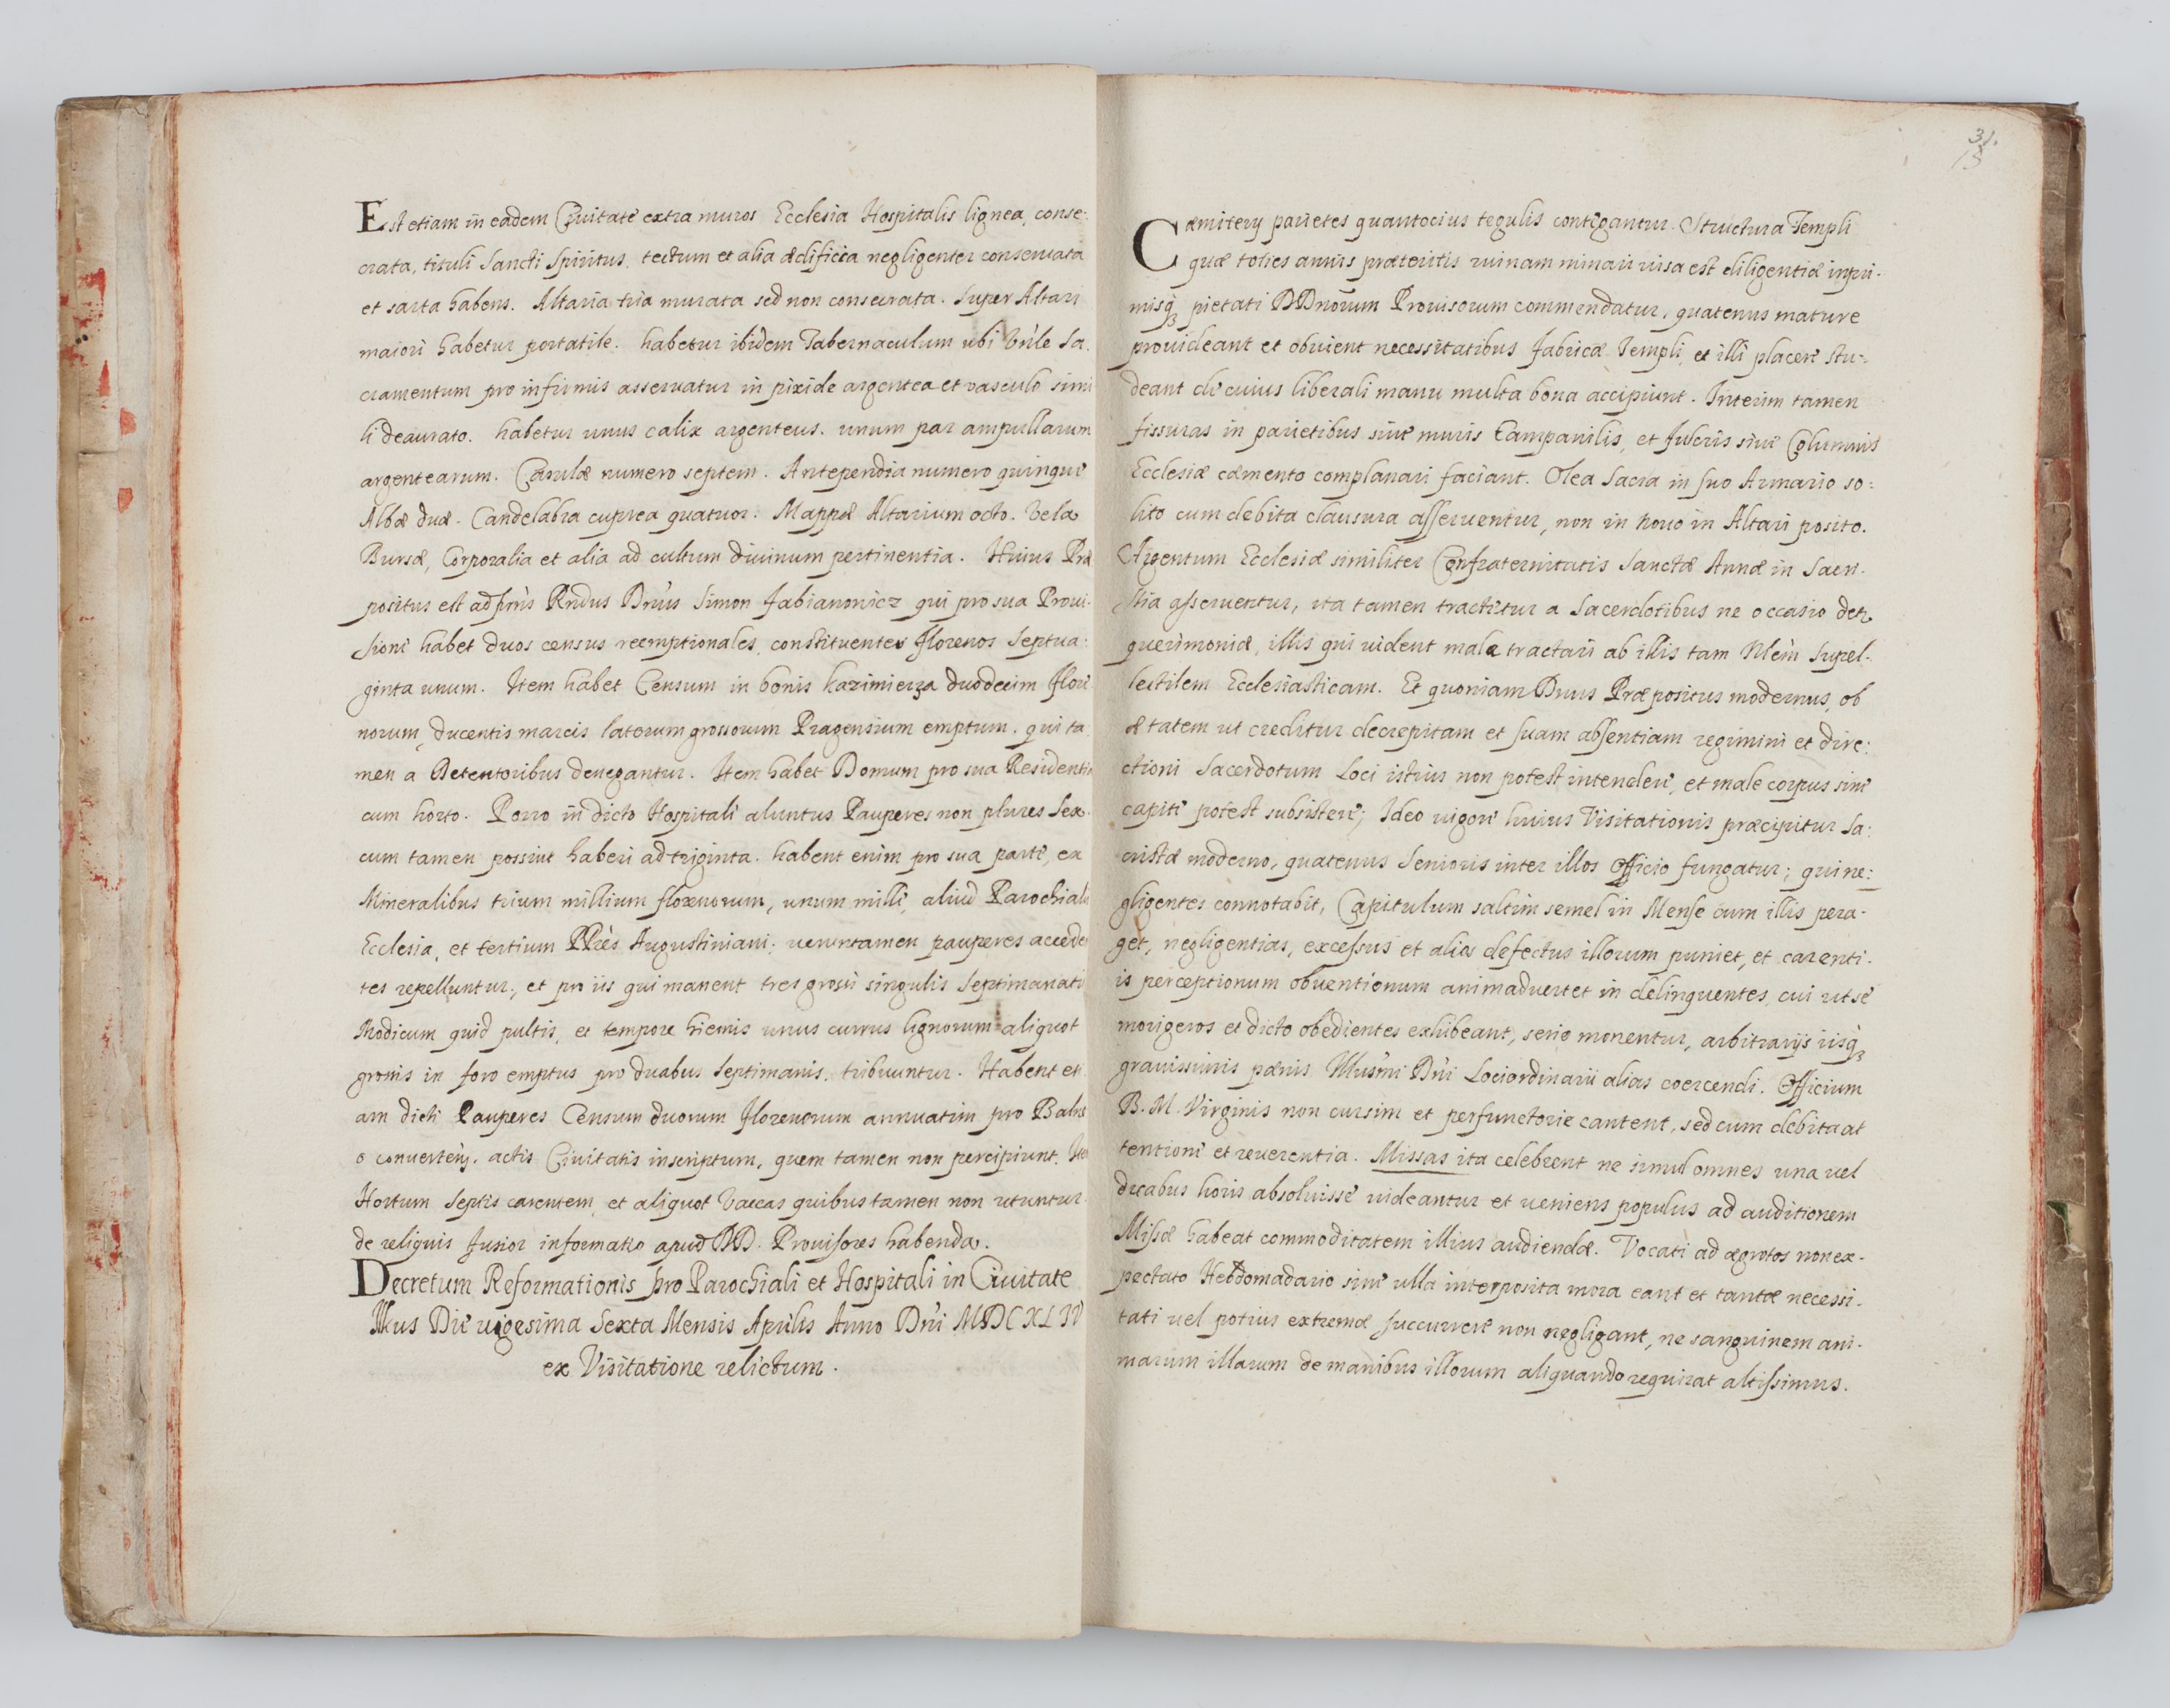 Est etiam in eadem Civitate extra muros Ecclesia Hospitalis lignea, conse-
crata, tituli Sancti Spiritus. tectum et alia ædificia negligenter conservata
et sarta habens. Altaria tria murata sed non consecrata. Super Altari
maiori habetur portatile. habetur ibidem Tabernaculum ubi Vnle Sa.
cramentum pro infirmis asservatur in pixide argentea et vasculo simi
li deaurato. habetur unus calix argenteus. unum par ampullarum
argentearum. Casulæ numero septem. Antependia numero quinque
Albæ duæ. Candelabra cuprea quatuor. Mappæ Altarium octo. Vela
Bursæ, Corporalia et alia ad cultum divinum pertinentia. Huius Præ
positus est adpns Rndus Dnus Simon Fabianowicz qui pro sua Provi-
sione habet duos census reemptionales, constituentes florenos Septua-
ginta unum. Item habet Censum in bonis Kazimierza duodecim flore
norum, ducentis marcis latorum grossorum Pragensium emptum. qui ta
men a Detentoribus denegantur. Item habet Domum pro sua Residentia
cum horto. Porro in dicto Hospitali aluntur Pauperes non plures Sex.
cum tamen possint haberi ad triginta. habent enim pro sua parte, ex
Mineralibus trium millium florenorum, unum mille, aliud Parochialis
Ecclesia, et tertium PPres Augustiniani; veruntamen pauperes acceden
tes repelluntur; et pro iis qui manent tres grossi singulis Septimanati
Modicum quid pultis, et tempore hiemis unus currus lignorum aliquot
grossis in foro emptus pro duabus Septimanis. tribuuntur. Habent eti
am dicti Pauperes Censum duorum florenorum annuatim pro Balne
o convertens. actis Civitatis inscriptum, quem tamen non percipiunt. Ite
Hortum Septis carentem, et aliquot Vaccas quibus tamen non utuntur.
de reliquis fusior informatio apud DD. Provisores habenda.
Decretum Reformationis pro Parochiali et Hospitali in Civitate
Ilkus Die vigesima Sexta Mensis Aprilis Anno Dni MDCXLIV
ex Visitatione relictum.
31.
15
Cæmiterij parietes quantocius tegulis contegantur. Structura Templi
quæ toties annis præteritis ruinam minari visa est diligentiæ inpri-
misq3 pietati DDnorum Provisorum commendatur, quatenus mature
provideant et obvient necessitatibus fabricæ Templi, et illi placere stu-
deant de cuius liberali manu multa bona accipiunt. Interim tamen
fissuras in parietibus sive muris Campanilis, et fulcris sive Columnis
Ecclesiæ cæmento complanari faciant. Olea Sacra in suo Armario so-
lito cum debita clausura asserventur, non in novo in Altari posito.
Argentum Ecclesiæ similiter Confraternitatis Sanctæ Annæ in Sacri-
stia asserventur, ita tamen tractetur a Sacerdotibus ne occasio detr
querimoniæ, illis qui vident male tractari ab illis tam Supel-
lectilem Ecclesiasticam. Et quoniam Dnus Præpositus modernus, ob
ætatem ut creditur decrepitam et suam absentiam regimini et dire-
ctioni Sacerdotum Loci istius non potest intendere, et male corpus sine
capite potest subsistere; Ideo vigore huius Visitationis præcipitur Sa-
cristæ moderno, quatenus Senioris inter illos Officio fungatur; qui ne-
gligentes connotabit, Capitulum saltim semel in Mense cum illis pera-
get, negligentias, excessus et alios defectus illorum puniet, et carenti-
is perceptionum obventionum animadvertet in delinquentes, cui ut se
morigeros et dicto obedientes exhibeant, serio monentur, arbitrarijs iisq3
gravissimis pænis Illusmi Dni Lociordinarii alias coercendi. Officium
B. M. Virginis non cursim et perfunctorie cantent, sed cum debita at
tentione et reverentia. Missas ita celebrent ne simul omnes una vel
duabus horis absolvisse videantur et veniens populus ad auditionem
Missæ habeat commoditatem illius audiendæ. Vocati ad ægrotos non ex-
pectato Hebdomadario sine ulla interposita mora eant et tantæ necessi-
tati vel potius extremæ succurrere non negligant, ne sanguinem ani-
marum illarum de manibus illorum aliquando requirat altissimus.